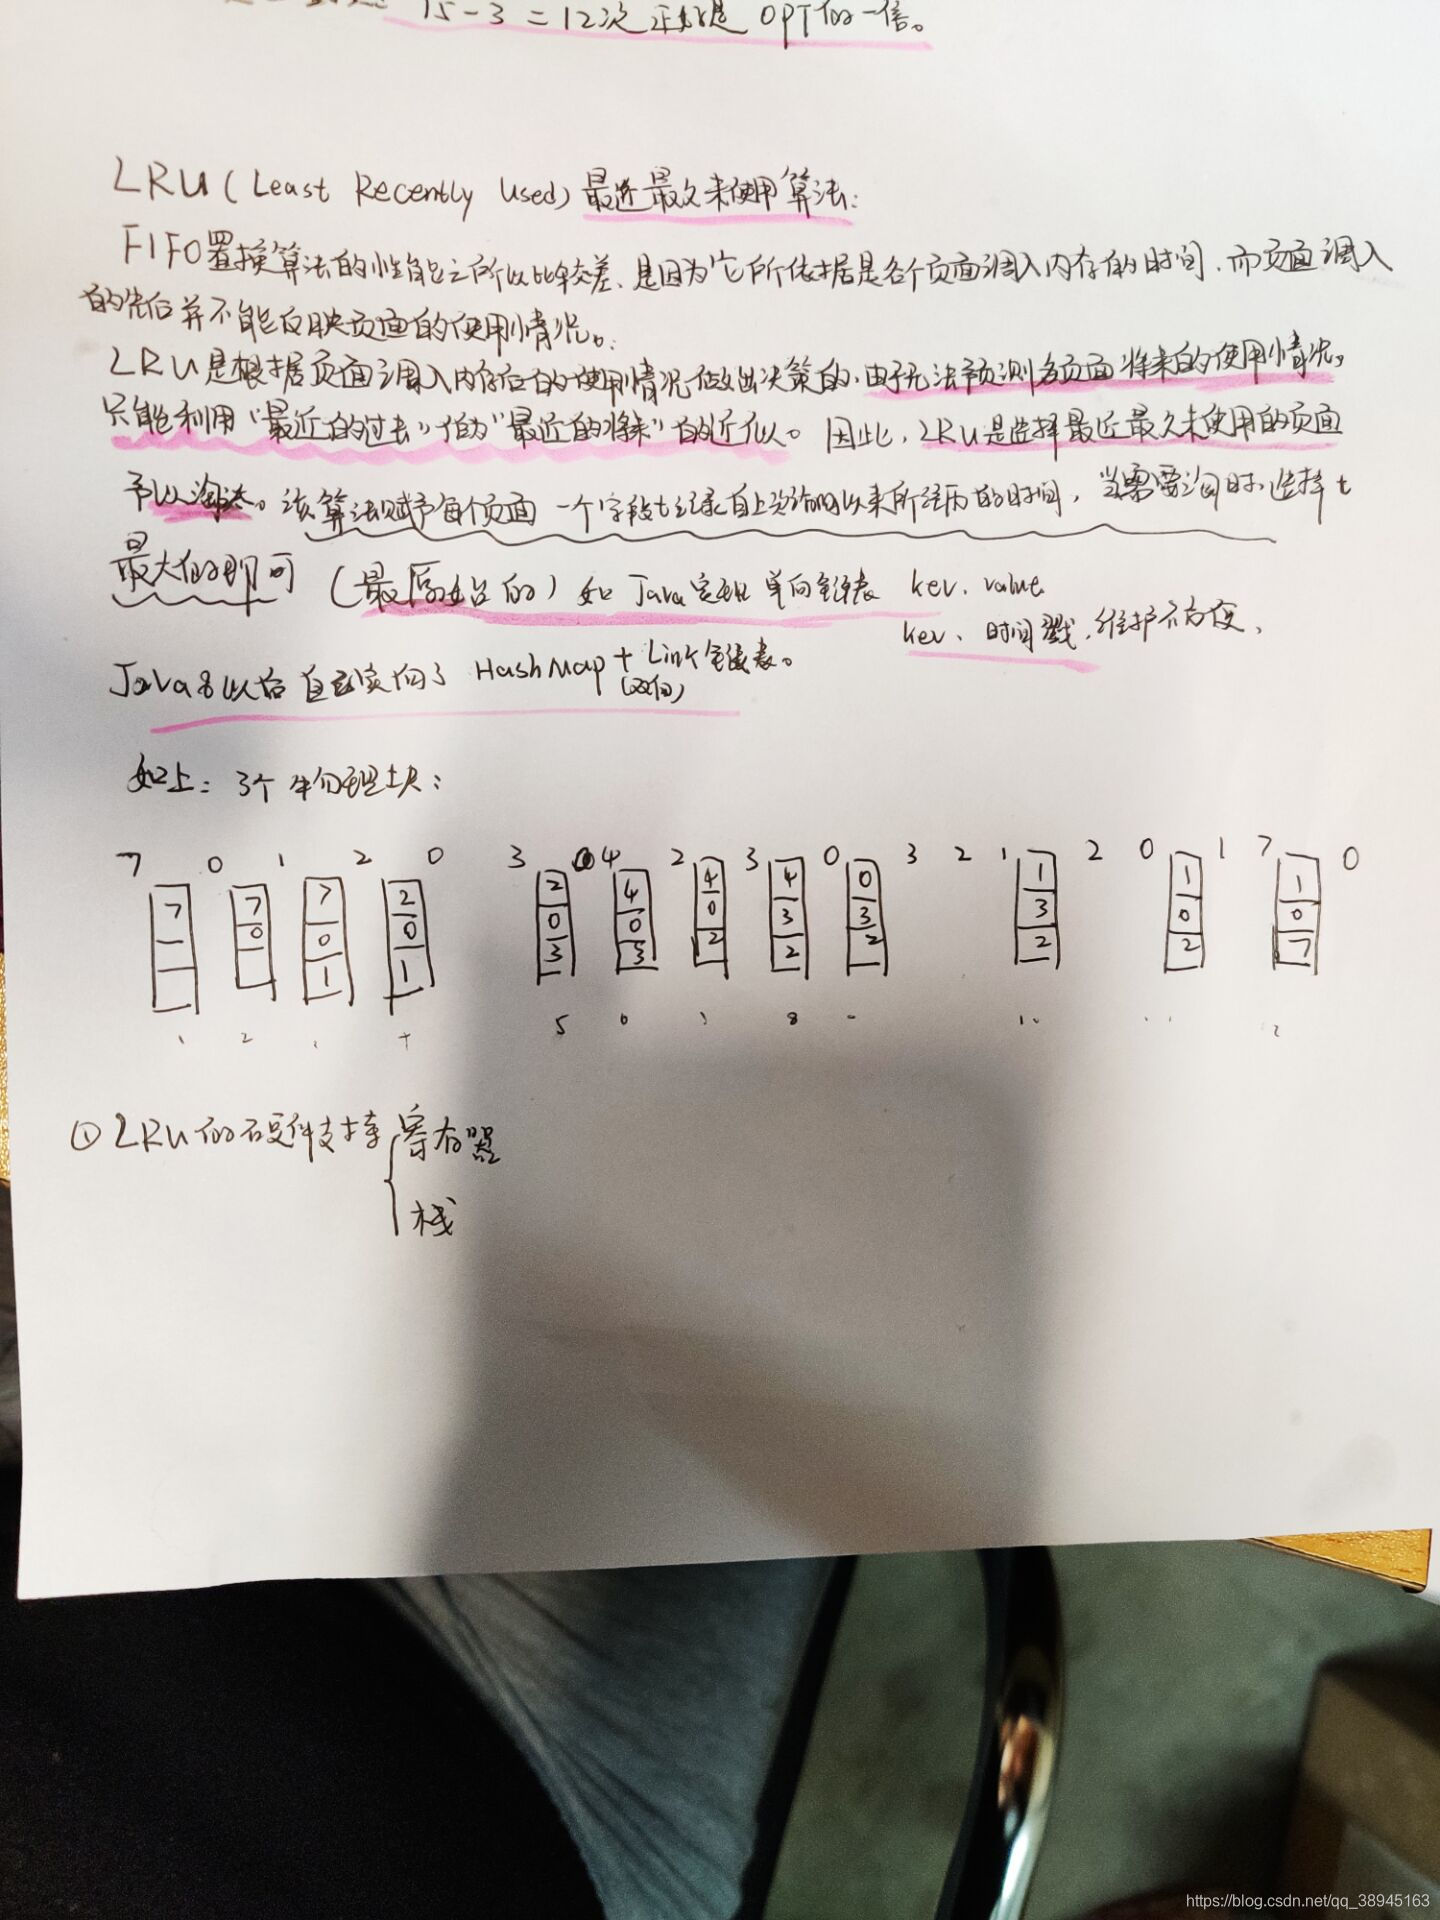 15-3=12次 正好是 OPT的一倍。
LRU(Least Recently Used)最近最久未使用算法:
FIFO置换算法的性能之所以比较差、是因为它所依据是各个页面调入内存的时间,而页面调入
的先后并不能反映页面的使用情况。:
LRU是根据页面调入内存后的使用情况做出决策的,由于无法预测各页面将来的使用情况,
只能利用"最近的过去"作为"最近的将来"的近似。因此,LRU是选择最近最久未使用的页面
予以淘汰。该算法赋予每个页面一个字段t记录自上次访问以来所经历的时间,当需要 时,选择t
最大值的即可(最原始的)如Java实现 单向链表 key、value
key、时间戳,维护不方便、
Java8以后 自己实现了 HashMap + Link链表。
(双向)
如上:3个物理块:
7 0 1 2 0 3 0 4 2 3 0 3 2 1 2 0 1 7 0
7 7 7 2 2 4 4 4 0 1 1 1
0 0 0 0 0 0 3 3 3 0 0
1 1 3 3 2 2 2 2 2 7
1 2 5 8
①LRU的硬件支持 寄存器
栈
https://blog.csdn.net/qq_38945163